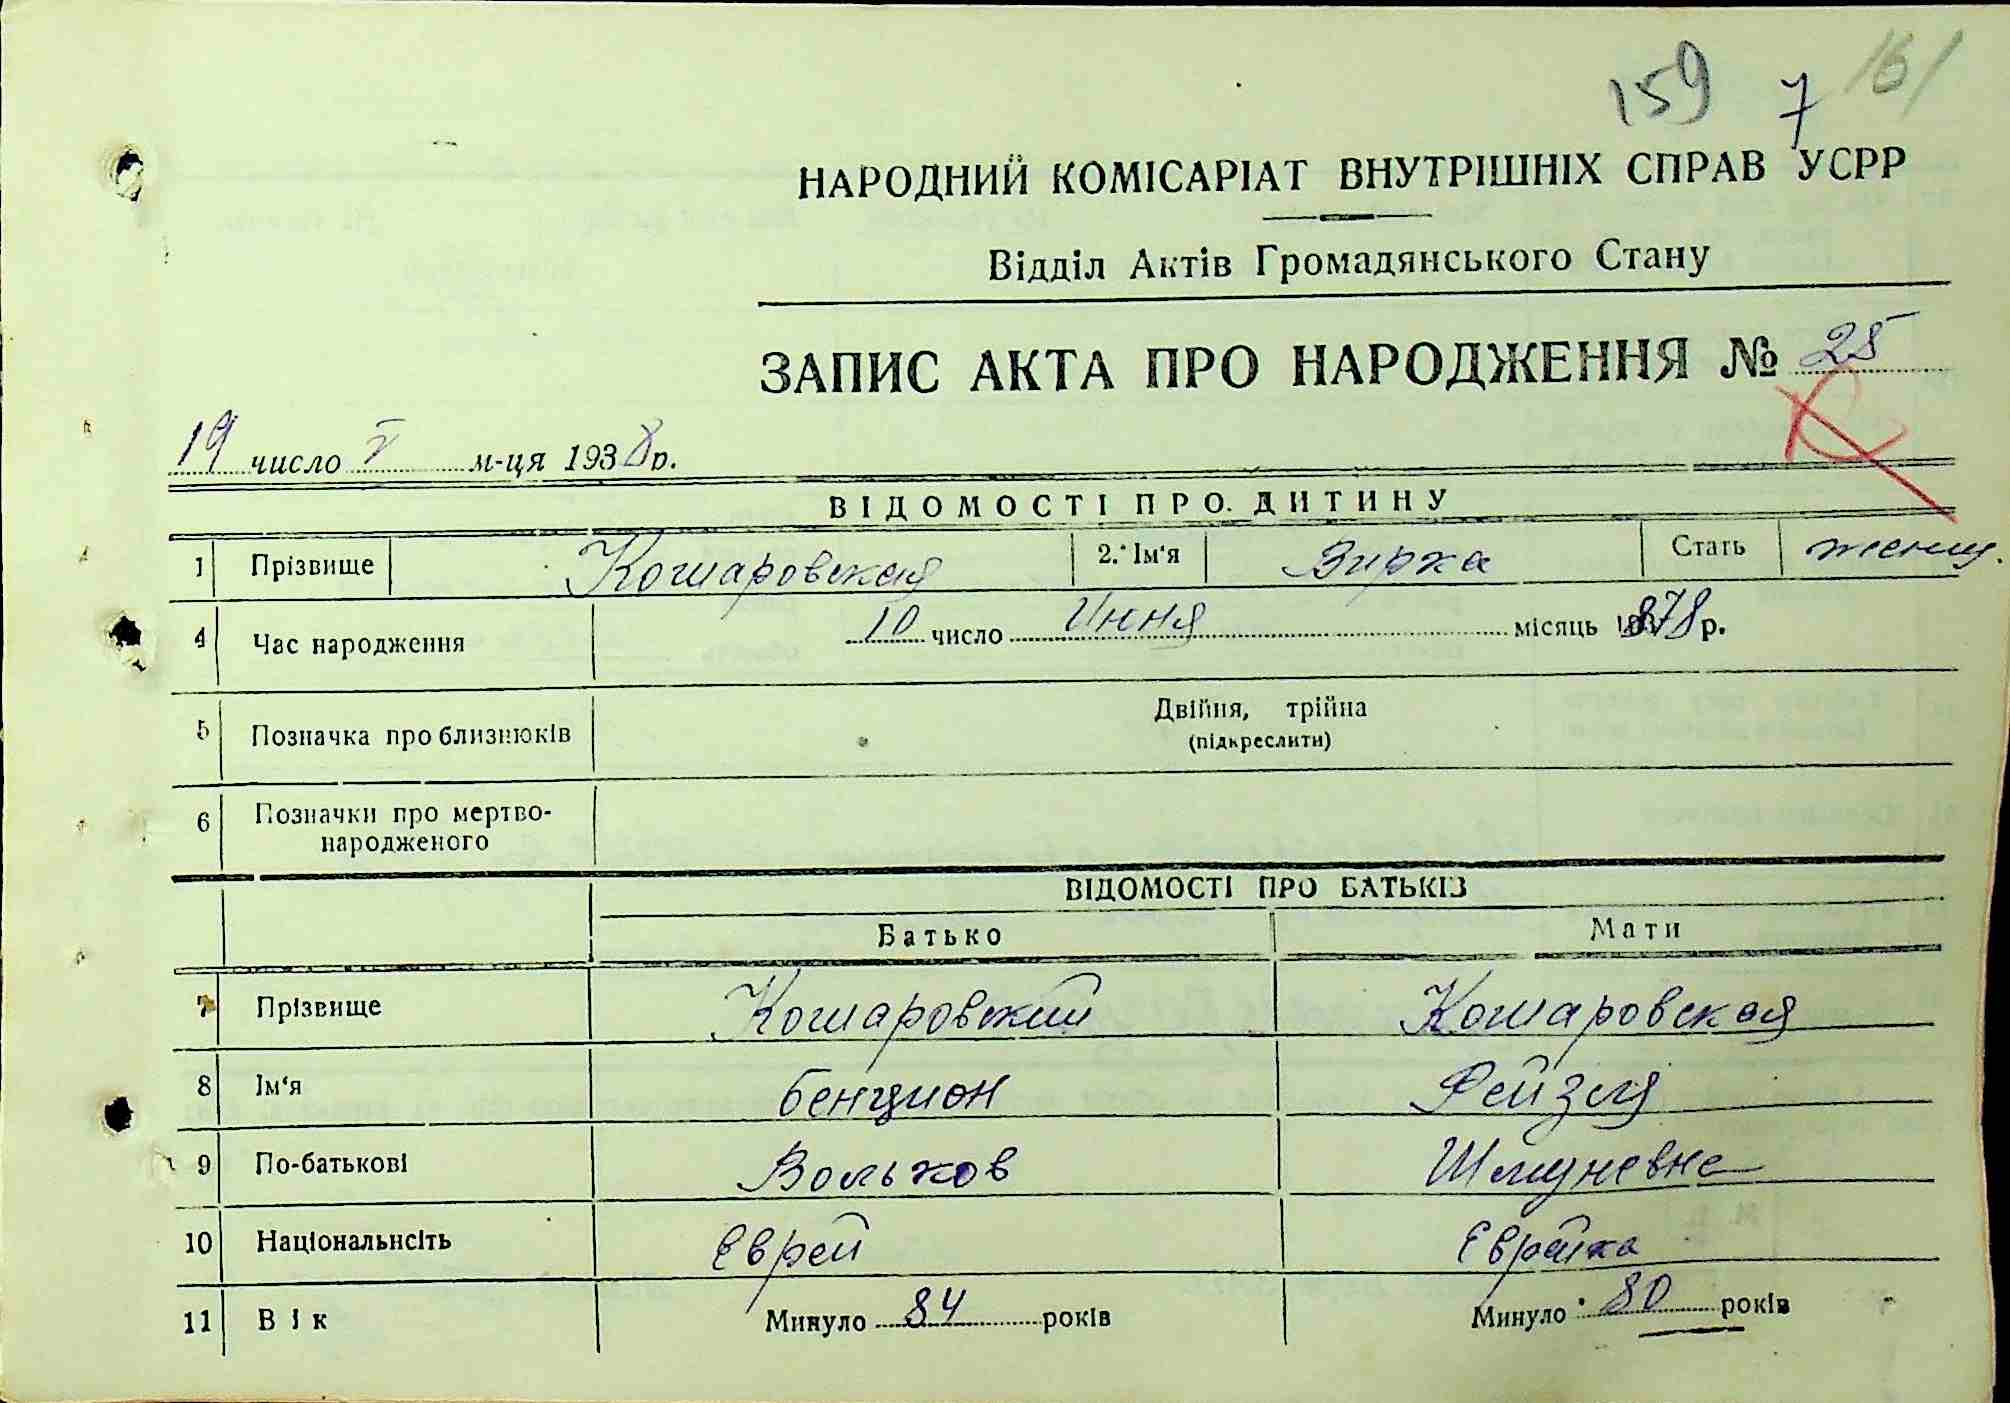 159 7 161
НАРОДНИЙ КОМІСАРІАТ ВНУТРІШНІХ СПРАВ УСРР
Відділ Актів Громадянського Стану
ЗАПИС АКТА ПРО НАРОДЖЕННЯ № 25
19 число V м-ця 1938 р.
ВІДОМОСТІ ПРО ДИТИНУ
1 Прізвище Кошаровская 2. Ім'я Вирха Стать женщ.
4 Час народження 10 число Июня місяць 1878 р.
5 Позначка про близнюків Двійня, трійна
(підкреслити)
6 Позначки про мертво-
народженого
ВІДОМОСТІ ПРО БАТЬКІВ
Батько Мати
7 Прізвище Кошаровский Кошаровская
8 Ім'я Бенцион Фейзля
9 По-батькові Вольков Шмулевна
10 Національнсіть Еврей Еврейка
11 Вік Минуло 84 років Минуло 80 років